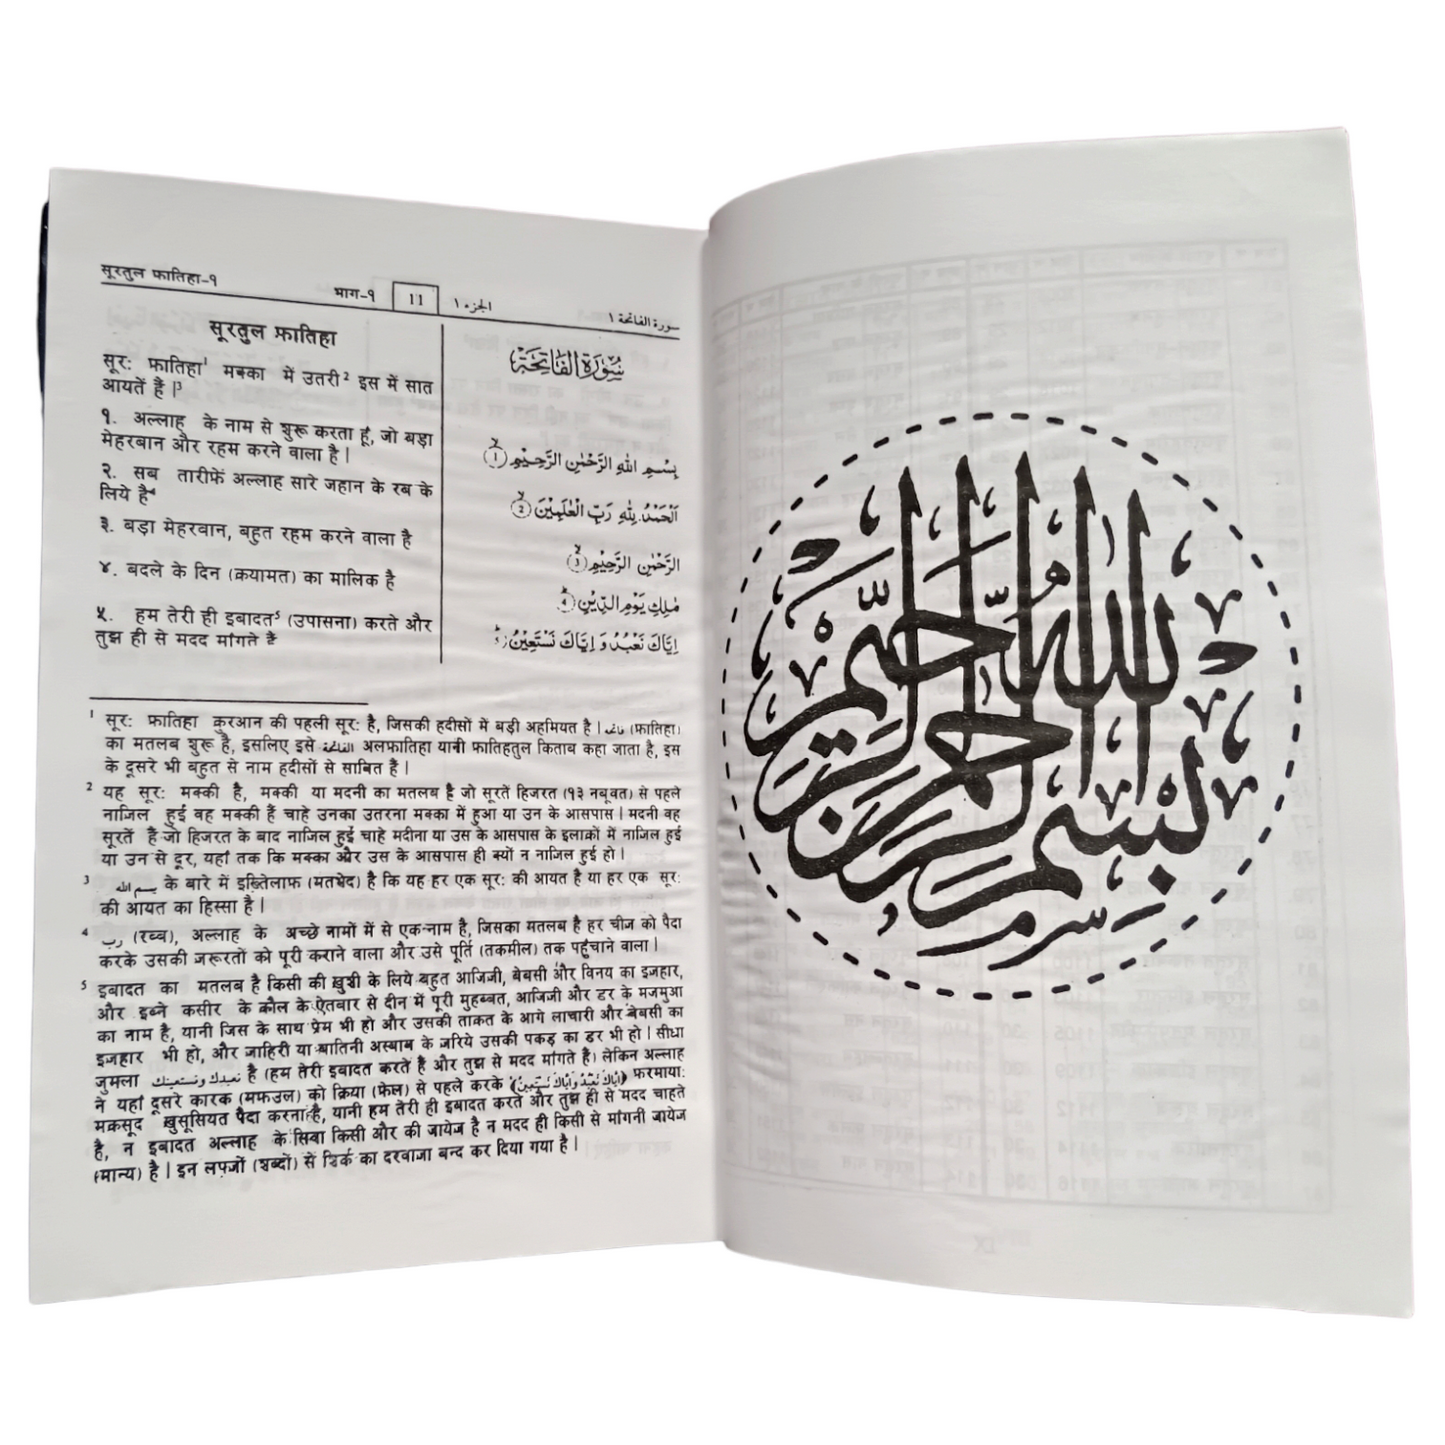 सूरतुल फातिहा-१ भाग-१ 11 الجزء ١ سورة الفاتحة ١
सूरतुल फ़ातिहा
सूर: फातिहा¹ मक्का में उतरी² इस में सात
आयतें हैं |³
१. अल्लाह के नाम से शुरू करता हूँ, जो बड़ा
मेहरबान और रहम करने वाला है |
२. सब तारीफ़ें अल्लाह सारे जहान के रब के
लिये है⁴
३. बड़ा मेहरबान, बहुत रहम करने वाला है
४. बदले के दिन (क़यामत) का मालिक है
५. हम तेरी ही इबादत⁵ (उपासना) करते और
तुझ ही से मदद मांगते हैं
سُوْرَةُ الْفَاتِحَةِ
بِسْمِ اللهِ الرَّحْمٰنِ الرَّحِيْمِ ①
اَلْحَمْدُ لِلّٰهِ رَبِّ الْعٰلَمِيْنَ ②
الرَّحْمٰنِ الرَّحِيْمِ ③
مٰلِكِ يَوْمِ الدِّيْنِ ④
اِيَّاكَ نَعْبُدُ وَ اِيَّاكَ نَسْتَعِيْنُ
¹ सूर: फातिहा क़ुरआन की पहली सूर: है, जिसकी हदीसों में बड़ी अहमियत है | فاتحه (फातिहा)
का मतलब शुरू है, इसलिए इसे الفاتحة अलफातिहा यानी फातिहतुल किताब कहा जाता है, इस
के दूसरे भी बहुत से नाम हदीसों से साबित हैं |
² यह सूर: मक्की है, मक्की या मदनी का मतलब है जो सूरतें हिजरत (१३ नबूवत) से पहले
नाजिल हुई वह मक्की हैं चाहे उनका उतरना मक्का में हुआ या उन के आसपास | मदनी वह
सूरतें हैं जो हिजरत के बाद नाजिल हुई चाहे मदीना या उस के आसपास के इलाक़ों में नाजिल हुई
या उन से दूर, यहाँ तक कि मक्का और उस के आसपास ही क्यों न नाजिल हुई हो |
³ بسم الله के बारे में इख़्तिलाफ़ (मतभेद) है कि यह हर एक सूर: की आयत है या हर एक सूर:
की आयत का हिस्सा है |
⁴ رب (रब्ब), अल्लाह के अच्छे नामों में से एक नाम है, जिसका मतलब है हर चीज को पैदा
करके उसकी जरूरतों को पूरी कराने वाला और उसे पूर्ति (तकमील) तक पहुँचाने वाला |
⁵ इबादत का मतलब है किसी की ख़ुशी के लिये बहुत आजिजी, बेबसी और विनय का इजहार,
और इब्ने कसीर के क़ौल के ऐतबार से दीन में पूरी मुहब्बत, आजिजी और डर के मजमुआ
का नाम है, यानी जिस के साथ प्रेम भी हो और उसकी ताक़त के आगे लाचारी और बेबसी का
इजहार भी हो, और जाहिरी या बातिनी अस्बाब के जरिये उसकी पकड़ का डर भी हो | सीधा
जुमला نعبدك ونستعينك है (हम तेरी इबादत करते हैं और तुझ से मदद मांगते हैं) लेकिन अल्लाह
ने यहाँ दूसरे कारक (मफऊल) को क्रिया (फ़ेल) से पहले करके ﴿اِيَّاكَ نَعْبُدُ وَاِيَّاكَ نَسْتَعِيْنُ﴾ फरमाया:
मक़सूद ख़ुसूसियत पैदा करना है, यानी हम तेरी ही इबादत करते और तुझ ही से मदद चाहते
है, न इबादत अल्लाह के सिवा किसी और की जायेज है न मदद ही किसी से मांगनी जायेज
(मान्य) है | इन लफ़्जों (शब्दों) से शिर्क का दरवाजा बन्द कर दिया गया है |
بسم الله الرحمن الرحيم